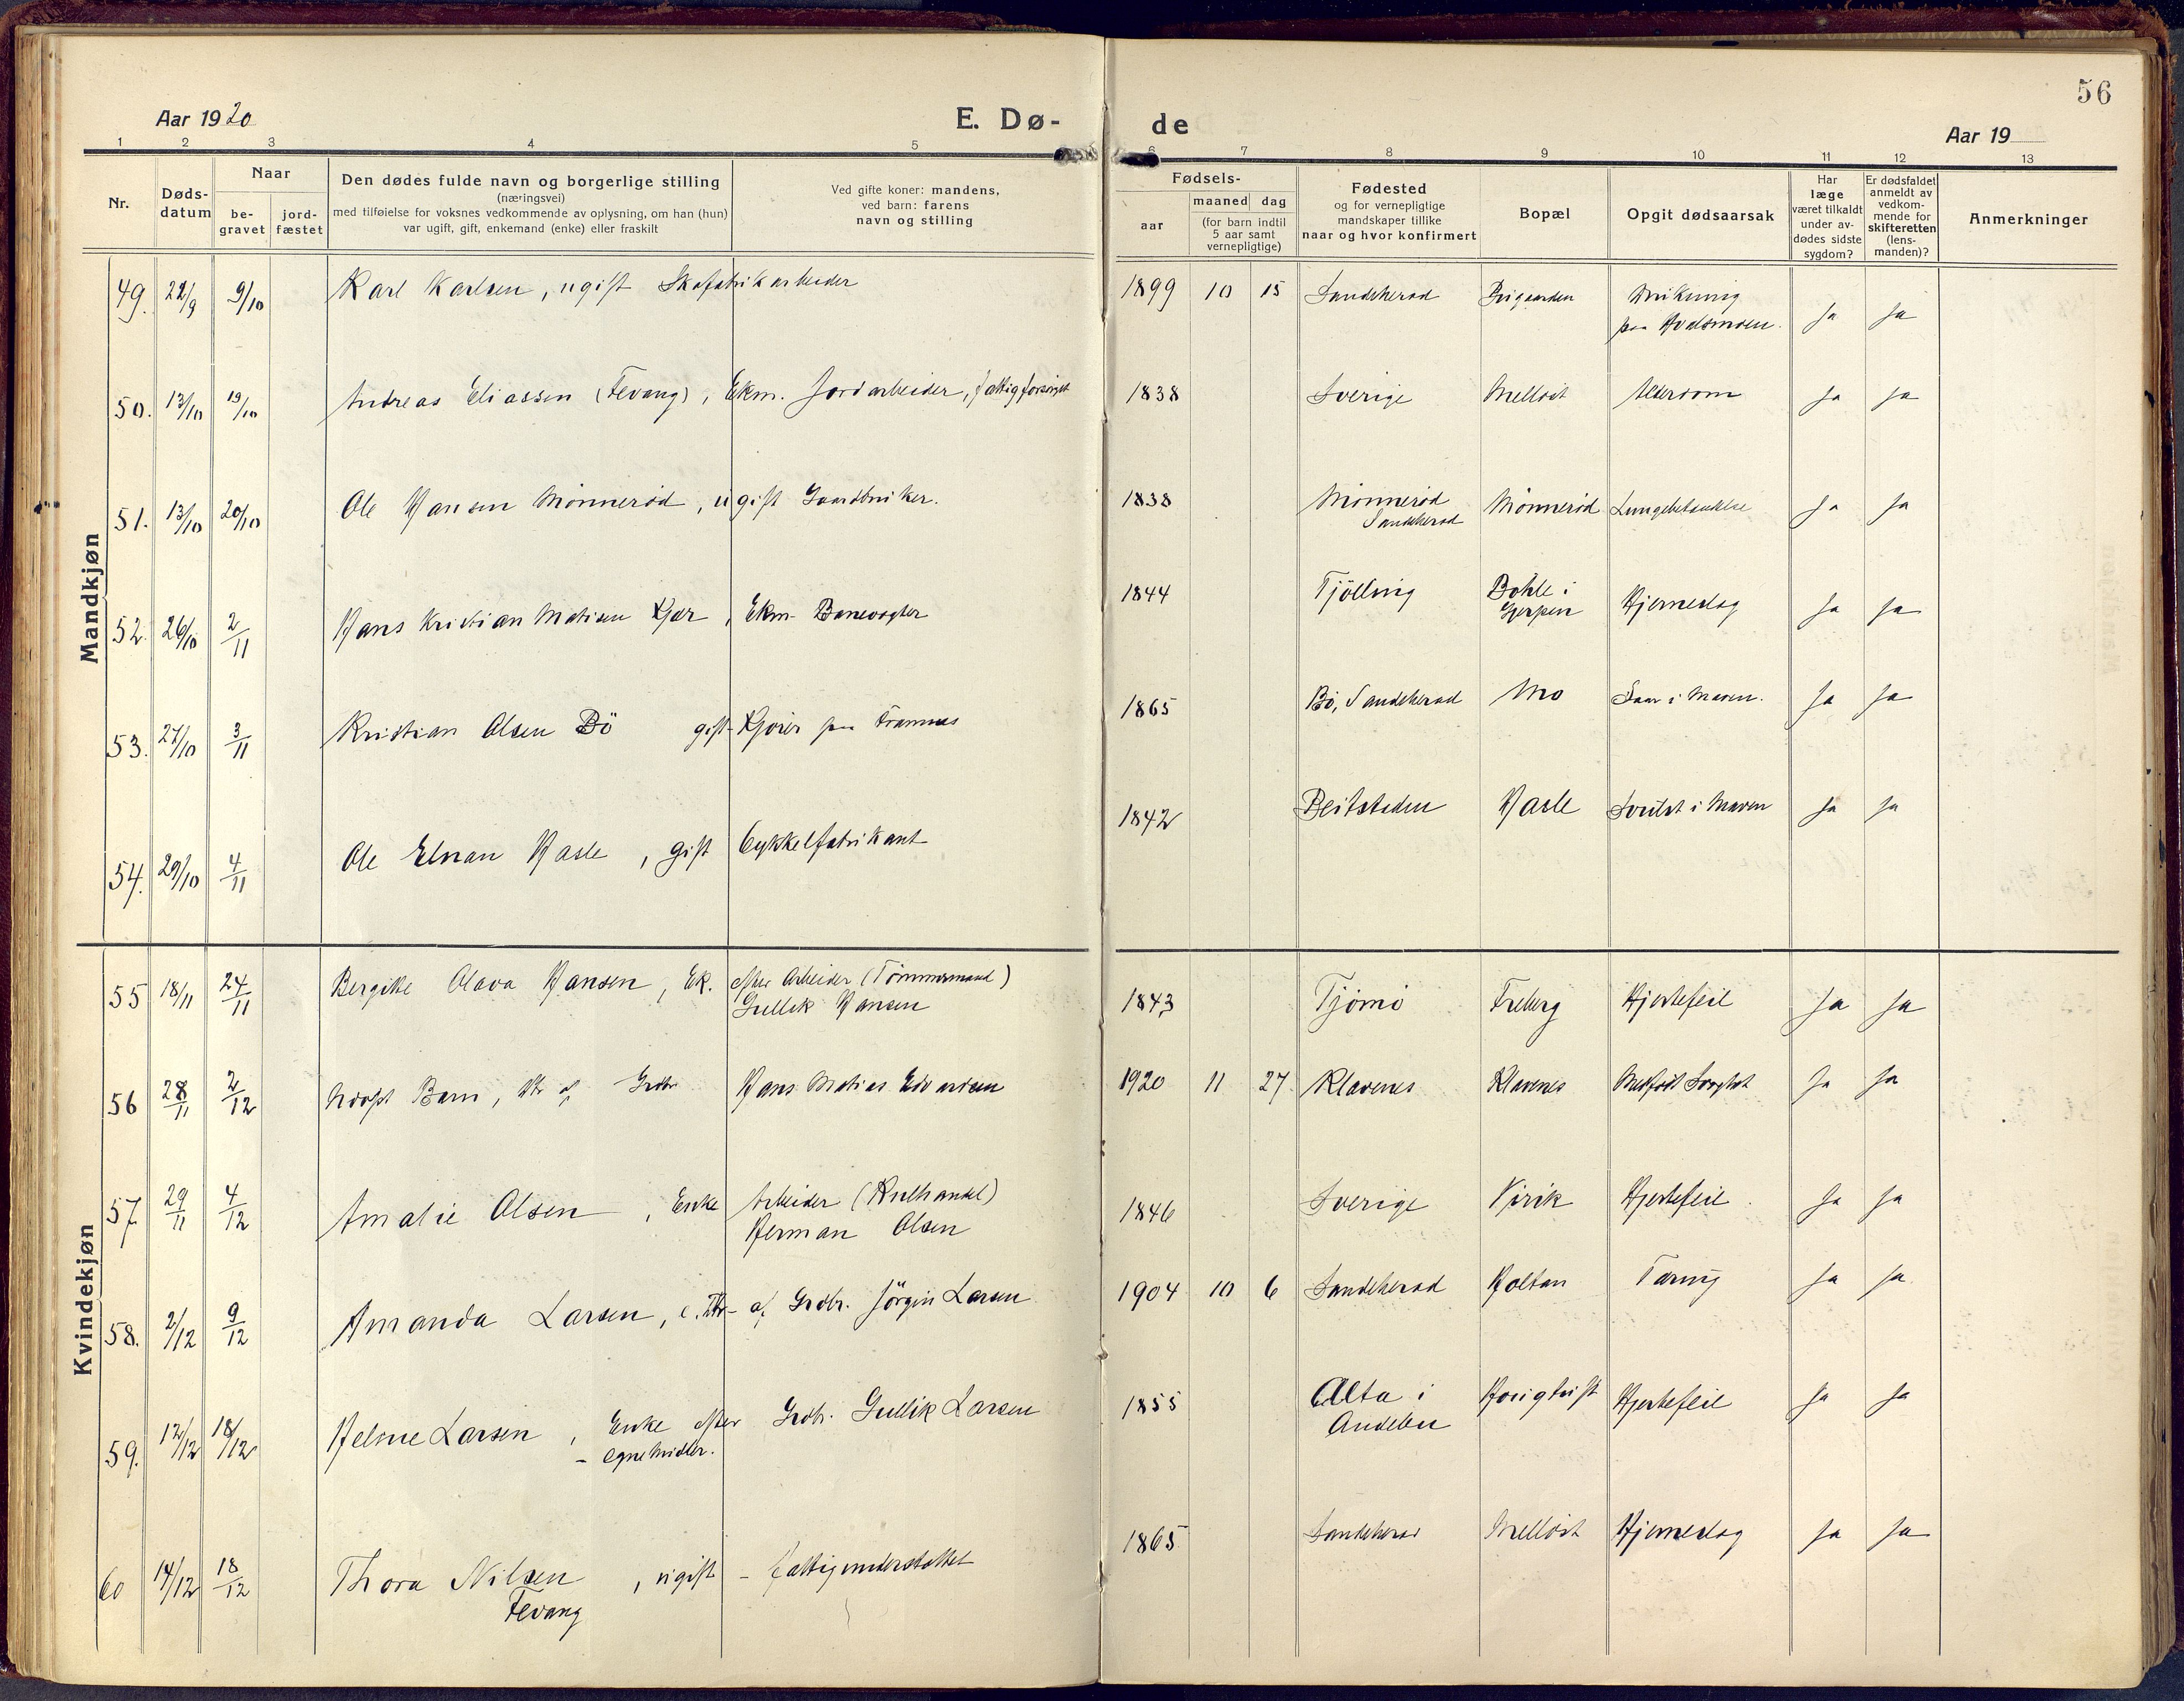 56
Aar 1920
E. Dø-
de
Aar 19
1 2 3 4 5 6 7 8 9 10 11 12 13
Nr.
Døds-
datum
Naar
be-
gravet
jord-
fæstet
Den dødes fulde navn og borgerlige stilling
(næringsvei)
med tilføielse for voksnes vedkommende av oplysning, om han (hun)
var ugift, gift, enkemand (enke) eller fraskilt
Ved gifte koner: mandens,
ved barn: farens
navn og stilling
Fødsels-
aar
maaned dag
(for barn indtil
5 aar samt
vernepligtige)
Fødested
og for vernepligtige
mandskaper tillike
naar og hvor konfirmert
Bopæl
Opgit dødsaarsak
Har
læge
været tilkaldt
under av-
dødes sidste
sygdom?
Er dødsfaldet
anmeldt av
vedkom-
mende for
skifteretten
(lens-
manden)?
Anmerkninger
Mandkjøn
49. 22/9 9/10 Karl Karlsen, ugift Skofabrikarbeider 1899 10 15 Sandeherad Ja Ja
paa
50. 13/10 19/10 Andreas Eliassen (Fevang), Ekm. Jordarbeider, fattigforsørget 1838 Sverige Melløst Alderdom Ja Ja
51. 13/10 20/10 Ole Hansen Mønnerød, ugift Gaardbruker. 1838 Mønnerød Mønnerød Lungebetændelse Ja Ja
Sandeherad
52. 26/10 2/11 Hans Kristian Matisen Kjær, Ekm. Banevogter 1844 Tjölling Böhle i Hjerneslag Ja Ja
Gjerpen
53. 27/10 3/11 Kristian Olsen Bö gift Kjører paa Framnæs 1865 Bö, Sandeherad Mo Saar i Maven. Ja Ja
54. 29/10 4/11 Ole Elnan Hasle, gift Cykkelfabrikant 1842 Beitstaden Hasle Svulst i Maven Ja Ja
Kvindekjøn
55 18/11 24/11 Bergitte Olava Hansen, Ek. efter Arbeider (Tømmermand) 1843 Tjømø Freberg Hjertefeil Ja Ja
Gullik Hansen
56 28/11 2/12 Udøpt Barn, Dtr af Grdbr. Hans Matias Edvardsen 1920 11 27 Klavenes Klavenes Medfødt Svaghet Ja Ja
57. 29/11 4/12 Amalie Olsen, Enke Arbeider (Kulhandel) 1846 Sverige Virik Hjertefeil. Ja Ja
Herman Olsen
58. 2/12 9/12 Amanda Larsen, e. Dtr. af Grdbr. Jörgin Larsen 1904 10 6 Sandeherad Holtan Tæring Ja Ja
59. 12/12 18/12 Helene Larsen, Enke efter Grdbr. Gullik Larsen 1855 Alta i Hjertefeil Ja Ja
- egne Midler. Andebu
60 14/12 18/12 Thora Nilsen, ugift - fattigunderstøttet 1865 Sandeherad Melløst Hjerneslag Ja Ja
Fevang